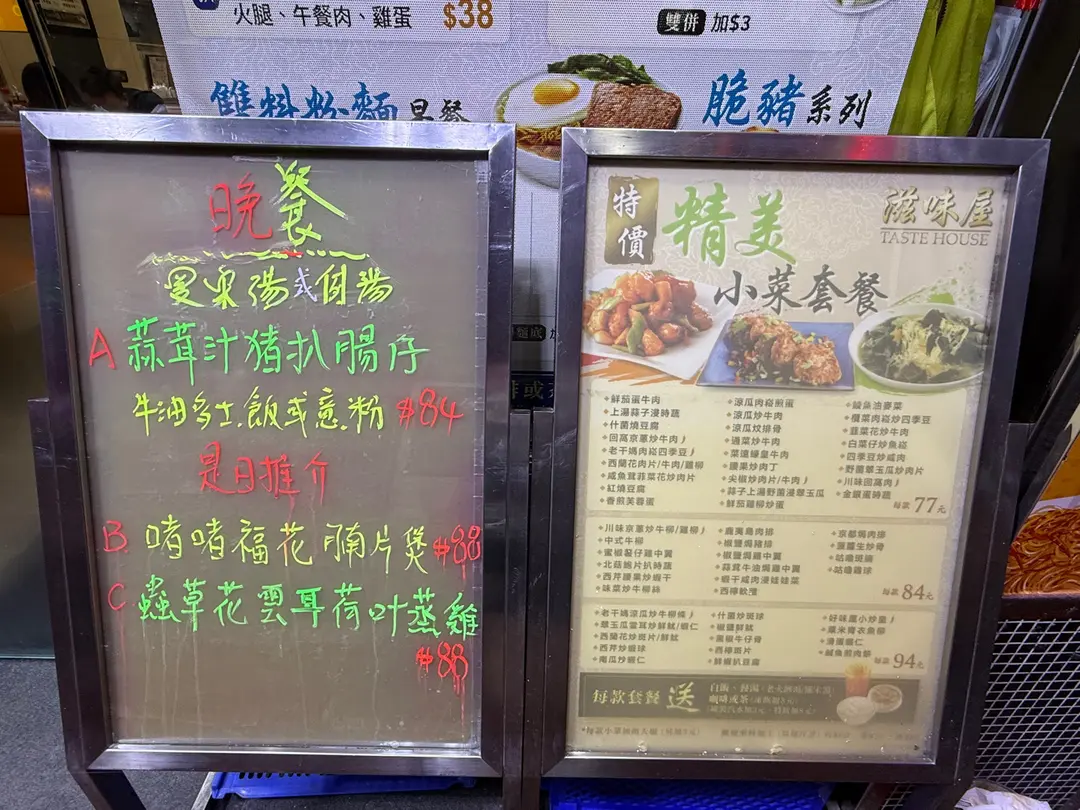 火腿、午餐肉、雞蛋 $38
雙併 加$3
雙料粉麵 早餐
脆豬系列
晚餐
或
A 蒜茸汁豬扒腸仔
牛油多士.飯或意粉 $84
是日推介
B. 啫啫福花腩片煲 $88
C 蟲草花雲耳荷叶蒸雞
$88
特價
精美
小菜套餐
滋味屋
TASTE HOUSE
鮮茄蛋牛肉
上湯蒜子浸時蔬
什菌燒豆腐
回高京蔥炒牛肉
老干媽肉崧四季豆
西蘭花肉片/牛肉/雞柳
咸魚茸菲菜花炒肉片
紅燒豆腐
香煎芙蓉蛋
涼瓜肉崧煎蛋
涼瓜炒牛肉
涼瓜炆排骨
通菜炒牛肉
菜遠蠔皇牛肉
腰果炒肉丁
尖椒炒肉片/牛肉
蒜子上湯野菌浸翠玉瓜
鮮茄雞柳炒蛋
鯪魚油麥菜
欖菜肉崧炒四季豆
韮菜花炒牛肉
白菜仔炒魚崧
四季豆炒咸肉
野菌翠玉瓜炒肉片
川味回高肉
金銀蛋時蔬
每款 77元
川味京蔥炒牛柳/雞柳
中式牛柳
蜜椒薯仔雞中翼
北菇鮑片扒時蔬
西芹腰果炒蝦干
味菜炒牛柳絲
鹿夷島肉排
椒鹽焗豬排
椒鹽焗雞中翼
蒜茸牛油焗雞中翼
蝦干咸肉浸娃娃菜
西檸軟雞
京都焗肉排
菠蘿生炒骨
咕嚕斑塊
咕嚕雞球
每款 84元
老干媽涼瓜炒牛柳條
翠玉瓜雲耳炒鮮魷/蝦仁
西蘭花炒斑片/鮮魷
西芹炒蝦球
南瓜炒蝦仁
什菌炒斑球
椒鹽鮮魷
黑椒牛仔骨
西檸斑片
鮮蝦扒豆腐
好味屋小炒皇
粟米膏衣魚柳
滑蛋蝦仁
鹹魚煎肉餅
每款 94元
每款套餐 送
咖啡或茶